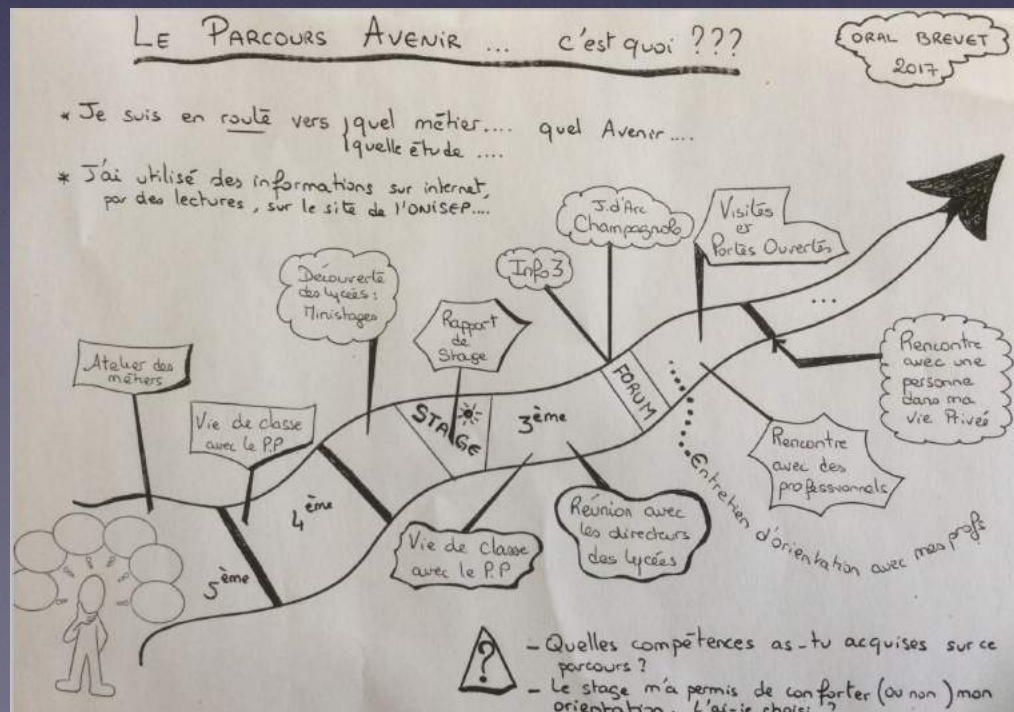 LE PARCOURS AVENIR ... c'est quoi ???
ORAL BREVET
2017
* Je suis en route vers quel métier.... quel Avenir ....
quelle étude ....
* J'ai utilisé des informations sur internet,
par des lectures, sur le site de l'ONISEP....
Atelier des
métiers
Vie de classe
avec le P.P
Découverte
des lycées :
Ministages
Rapport
de
Stage
Info 3
J. d'Arc
Champagnole
Visites
et
Portes Ouvertes
...
Rencontre
avec une
personne
dans ma
vie Privée
Rencontre
avec des
professionnels
Entretien d'orientation avec mes profs
FORUM
3ème
STAGE
4ème
5ème
Vie de classe
avec le P.P
Réunion avec
les directeurs
des lycées
?
- Quelles compétences as-tu acquises sur ce
parcours ?
- Le stage m'a permis de conforter (ou non) mon
orientation. L'ai-je choisi ?